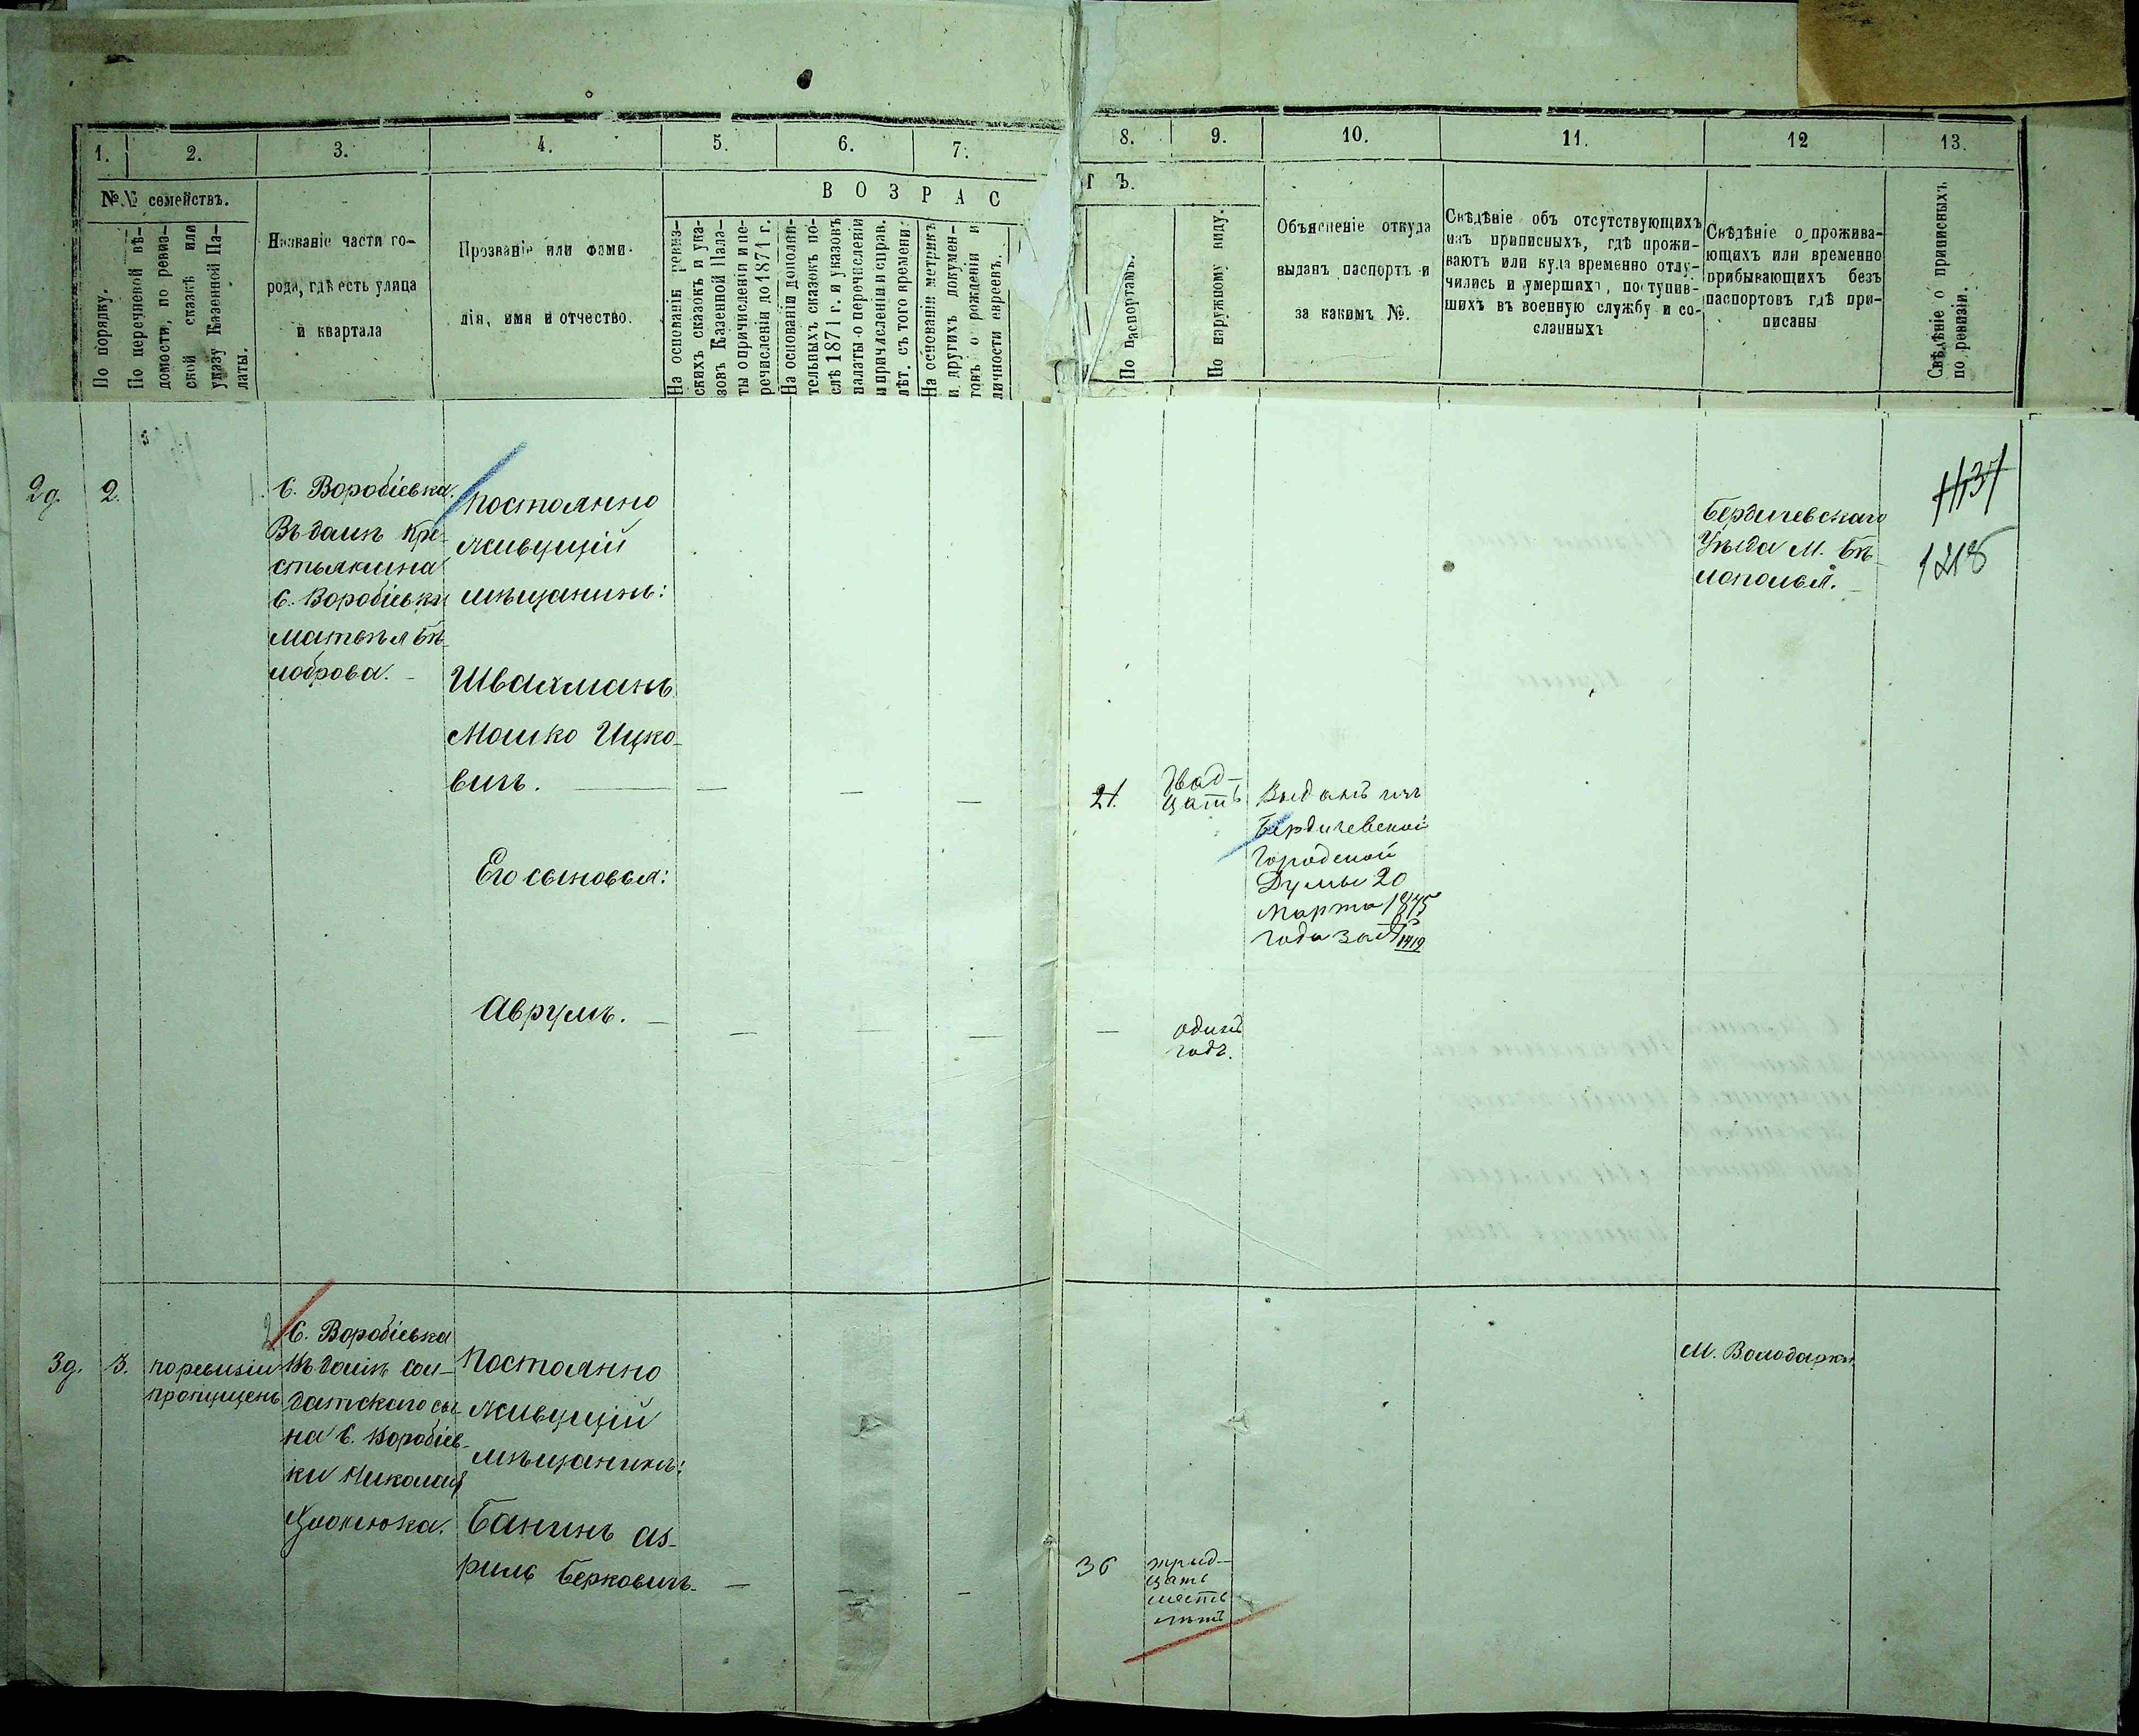 1.
2.
3.
4.
5.
6.
7.
8.
9.
10.
11.
12
13.
№№ семействъ.
По порядку.
По перечневой вѣ-
домости, по ревиз-
ской сказкѣ или
указу Казенной Па-
латы.
Названіе части го-
рода, гдѣ есть улица
и квартала
Прозваніе или фами-
лія, имя и отчество.
ВОЗРАС
ТЪ.
На основаніи ревиз-
скихъ сказокъ и ука-
зовъ Казенной Пала-
ты о причисленіи и пе-
речисленіи до 1871 г.
На основаніи дополни-
тельныхъ сказокъ по-
слѣ 1871 г. и указовъ
палаты о перечисленіи
и причисленіи и справ.
лѣт. съ того времени.
На основаніи метрикъ
и другихъ докумен-
товъ о рожденіи и
личности евреевъ.
По паспортамъ.
По наружному виду.
Объясненіе откуда
выданъ паспортъ и
за какимъ №.
Свѣдѣніе объ отсутствующихъ
изъ приписныхъ, гдѣ прожи-
ваютъ или куда временно отлу-
чились и умершихъ, поступив-
шихъ въ военную службу и со-
сланныхъ
Свѣдѣніе о прожива-
ющихъ или временно
прибывающихъ безъ
паспортовъ гдѣ при-
писаны
Свѣдѣніе о приписныхъ
по ревизіи.
2д.
2.
С. Воробіевка.
Въ домѣ Кре-
стьянина
С. Воробіевки
Матвѣя Бѣ-
лоброва.
Постоянно
живущій
мѣщанинъ:
Швахманъ
Мошко Ицко-
вичъ.
21.
двад-
цать
Выданъ изъ
Бердичевской
Городской
Думы 20
Марта 1875
года за № 1419
Бердичевскаго
Уѣзда М. Бѣ-
лополья.
1137
1218
Его сыновья:
Аврумъ.
одинъ
годъ.
3д.
3.
по ревизіи
пропущенъ
2
С. Воробіевка
Въ домѣ сол-
датскаго сы-
на С. Воробіев-
ки Николая
Постоянно
живущій
мѣщанинъ:
Банинъ Аз-
риль Берковичъ
36
трид-
цать
шесть
лѣтъ
М. Володарки